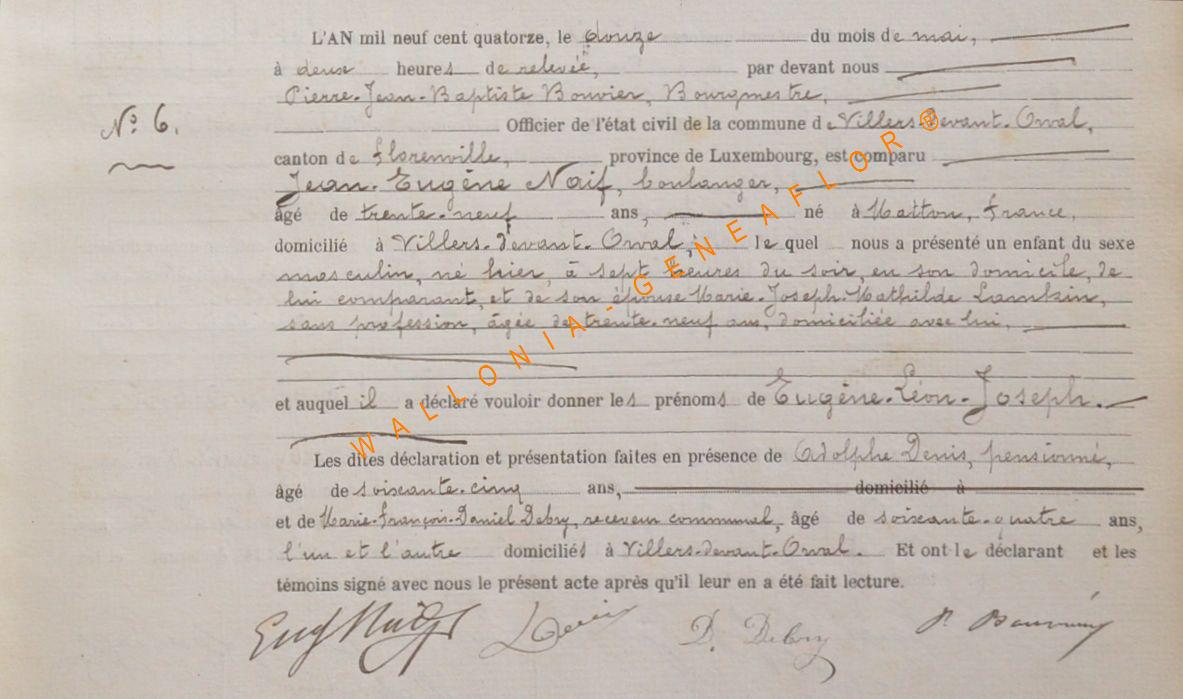 L'AN mil neuf cent quatorze, le douze du mois de mai,
à deux heures de relevée, par devant nous
Pierre-Jean-Baptiste Bouvier, Bourgmestre,
Nº 6.
Officier de l'état civil de la commune de Villers-devant-Orval,
canton de Florenville, province de Luxembourg, est comparu
Jean-Eugène Naif, boulanger,
âgé de trente-neuf ans, né à Matton, France,
domicilié à Villers-devant-Orval, lequel nous a présenté un enfant du sexe
masculin, né hier, à sept heures du soir, en son domicile, de
lui comparant, et de son épouse Marie-Joseph-Mathilde Lambin,
sans profession, âgée de trente-neuf ans, domiciliée avec lui,
et auquel il a déclaré vouloir donner les prénoms de Eugène-Léon-Joseph.
Les dites déclaration et présentation faites en présence de Adolphe Denis, pensionné,
âgé de soixante-cinq ans, domicilié à
et de Marie-François-Daniel Debry, receveur communal, âgé de soixante-quatre ans,
l'un et l'autre domiciliés à Villers-devant-Orval. Et ont le déclarant et les
témoins signé avec nous le présent acte après qu'il leur en a été fait lecture.
Denis D. Debry
WALLONIA-GENEAFLOR®